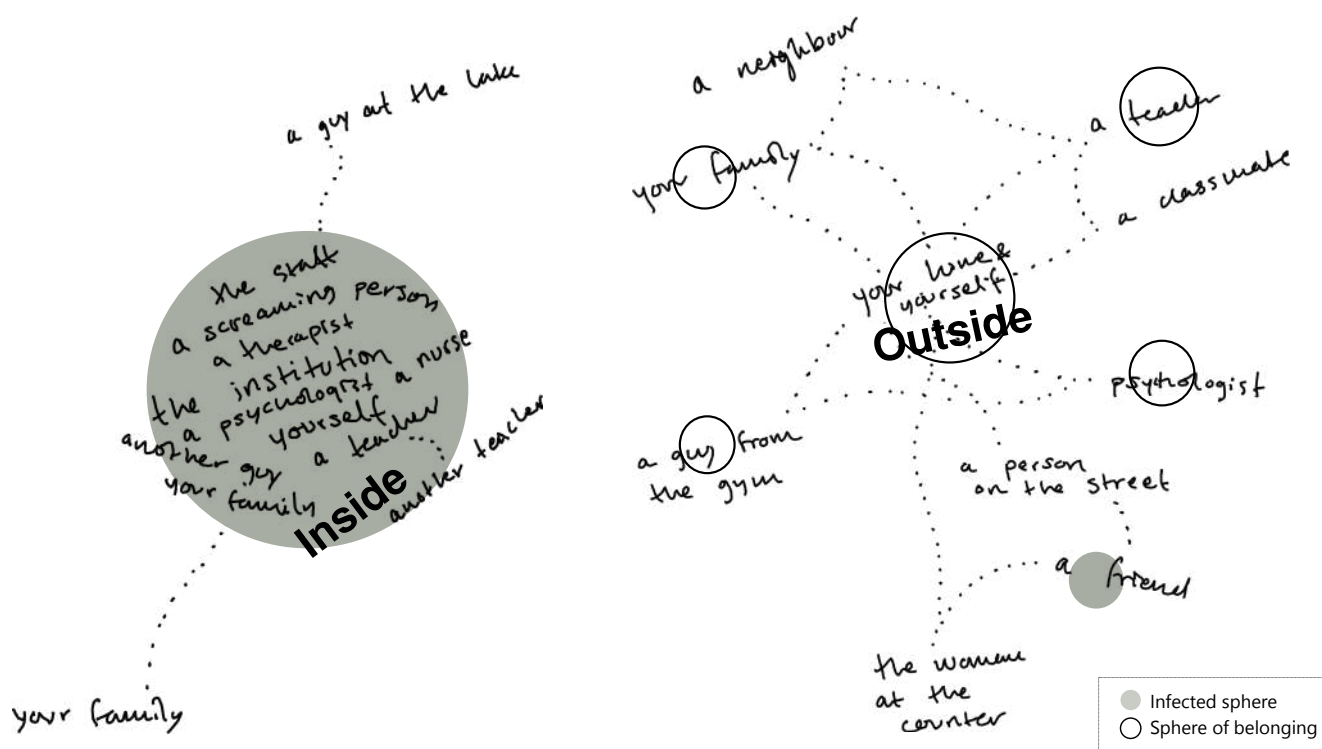 a guy at the lake
the staff
a screaming person
a therapist
the institution
a psychologist a nurse
yourself
another guy
a teacher
another teacher
your family
Inside
your family
a neighbour
a teacher
your family
a classmate
your home &
yourself
Outside
psychologist
a guy from
the gym
a person
on the street
a friend
the woman
at the
counter
Infected sphere
Sphere of belonging